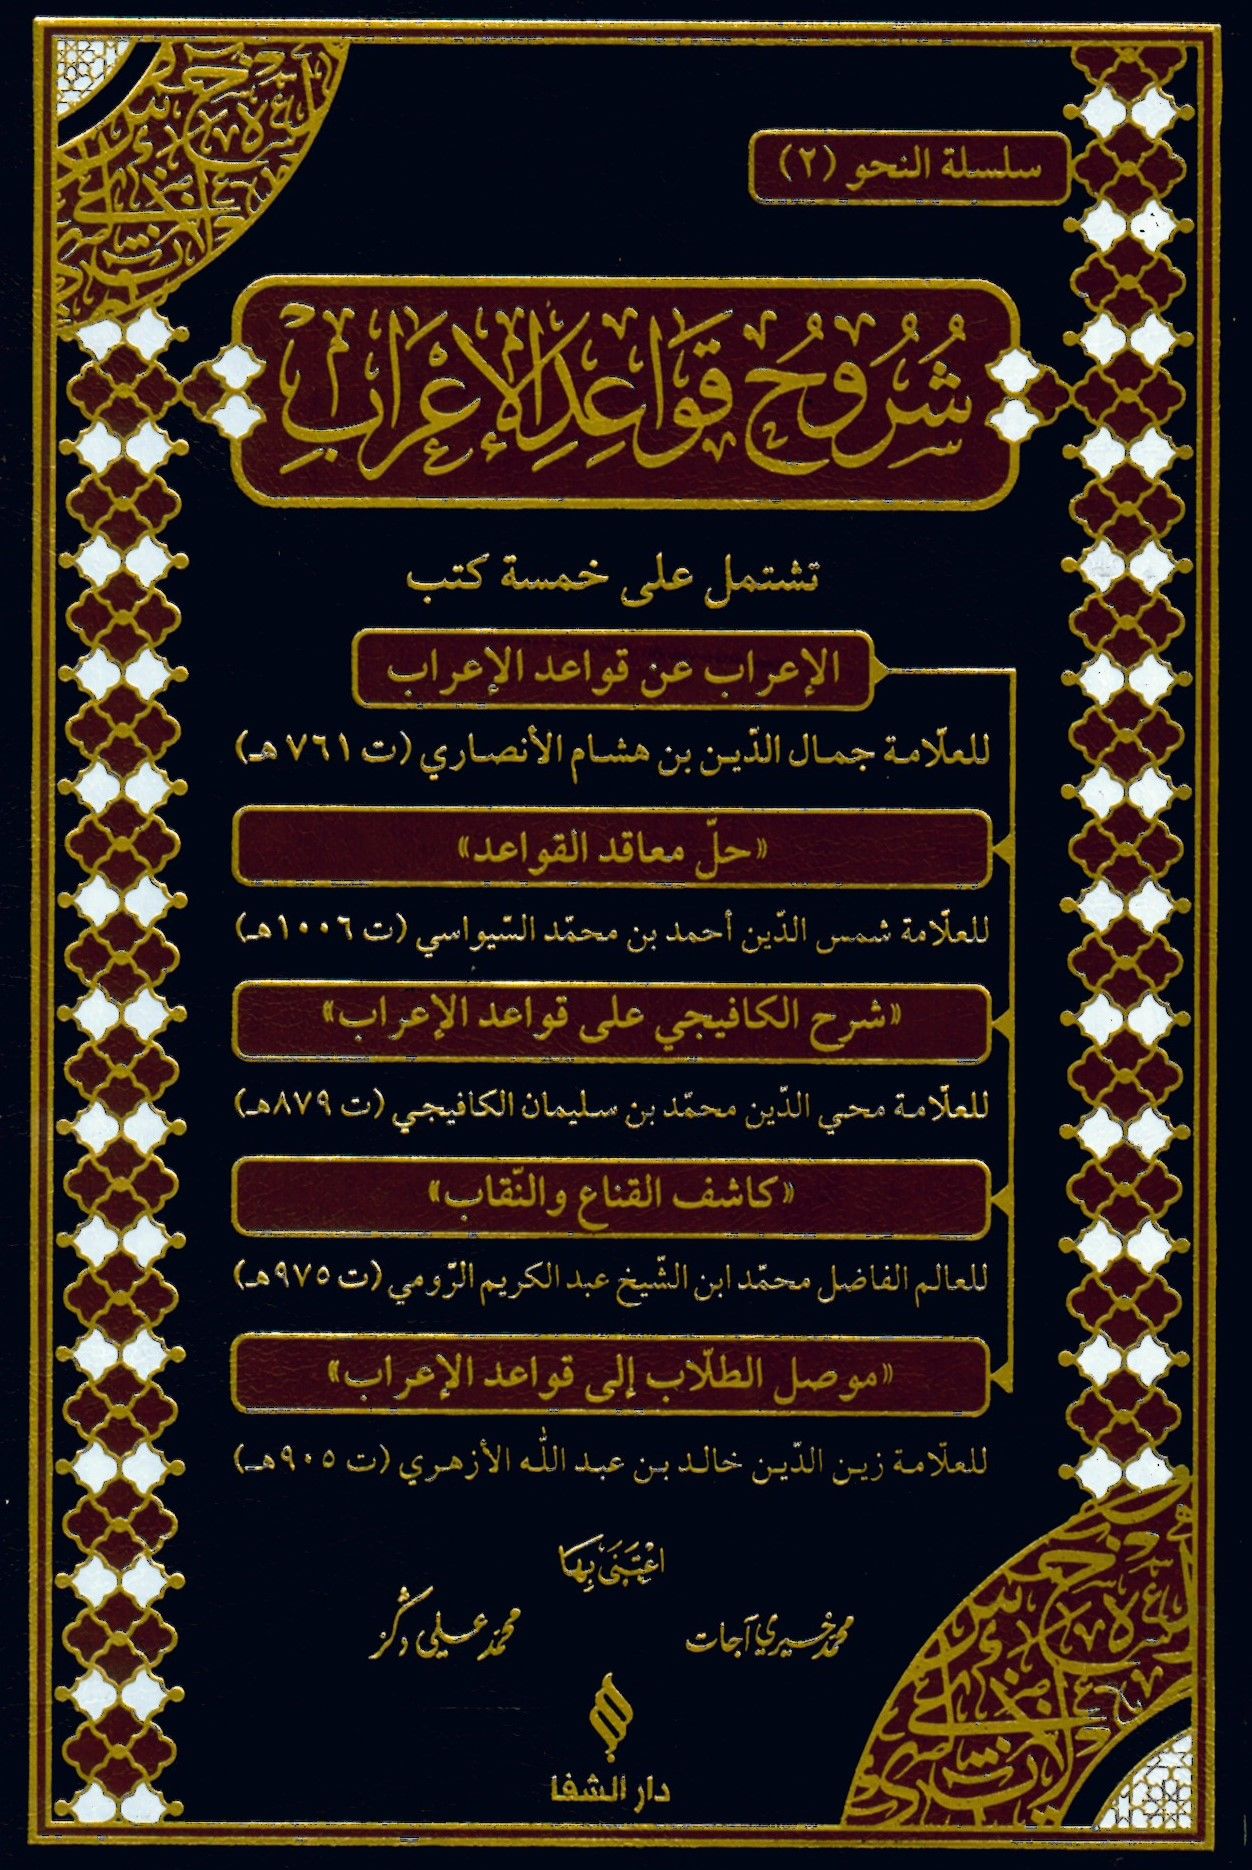 سلسلة النحو (٢)
شُرُوحُ قَوَاعِدِ الإِعْرَابِ
تشتمل على خمسة كتب
الإعراب عن قواعد الإعراب
للعلّامة جمال الدّين بن هشام الأنصاري (ت ٧٦١ هـ)
«حلّ معاقد القواعد»
للعلّامة شمس الدّين أحمد بن محمّد السّيواسي (ت ١٠٠٦ هـ)
«شرح الكافيجي على قواعد الإعراب»
للعلّامة محيي الدّين محمّد بن سليمان الكافيجي (ت ٨٧٩هـ)
«كاشف القناع والنّقاب»
للعالم الفاضل محمّد ابن الشّيخ عبد الكريم الرّومي (ت ٩٧٥هـ)
«موصل الطلّاب إلى قواعد الإعراب»
للعلّامة زين الدّين خالد بن عبد الله الأزهري (ت ٩٠٥هـ)
اعْتَنَى بِهَا
محمد خيري آجات محمد علي
دار الشفا